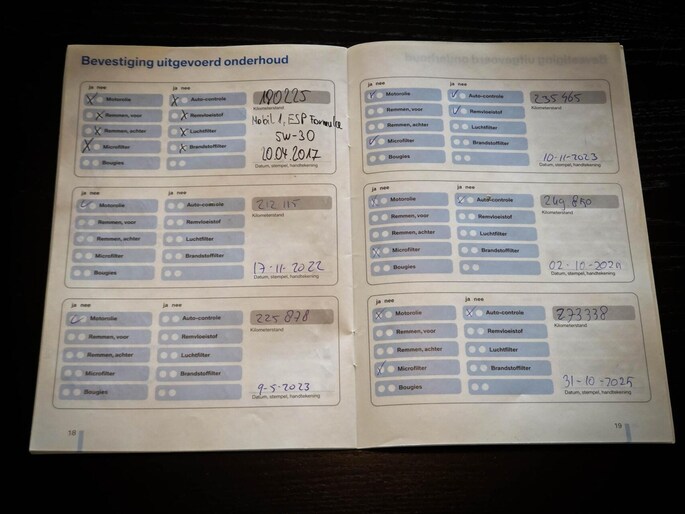 Bevestiging uitgevoerd onderhoud
ja nee ja nee
Motorolie Auto-controle 190225
Kilometerstand
Remmen, voor Remvloeistof Mobil 1, ESP Formulae
Remmen, achter Luchtfilter 5W-30
Microfilter Brandstoffilter 20.04.2017
Bougies Datum, stempel, handtekening
ja nee ja nee
Motorolie Auto-controle 212 115
Kilometerstand
Remmen, voor Remvloeistof
Remmen, achter Luchtfilter
Microfilter Brandstoffilter 17-11-2022
Bougies Datum, stempel, handtekening
ja nee ja nee
Motorolie Auto-controle 225 878
Kilometerstand
Remmen, voor Remvloeistof
Remmen, achter Luchtfilter
Microfilter Brandstoffilter 9-5-2023
Bougies Datum, stempel, handtekening
18
ja nee ja nee
Motorolie Auto-controle 235 465
Kilometerstand
Remmen, voor Remvloeistof
Remmen, achter Luchtfilter
Microfilter Brandstoffilter
Bougies 10-11-2023
Datum, stempel, handtekening
ja nee ja nee
Motorolie Auto-controle 249 850
Kilometerstand
Remmen, voor Remvloeistof
Remmen, achter Luchtfilter
Microfilter Brandstoffilter
Bougies
Datum, stempel, handtekening
ja nee ja nee
Motorolie Auto-controle 273338
Kilometerstand
Remmen, voor Remvloeistof
Remmen, achter Luchtfilter
Microfilter Brandstoffilter
Bougies 31-10-2025
Datum, stempel, handtekening
19